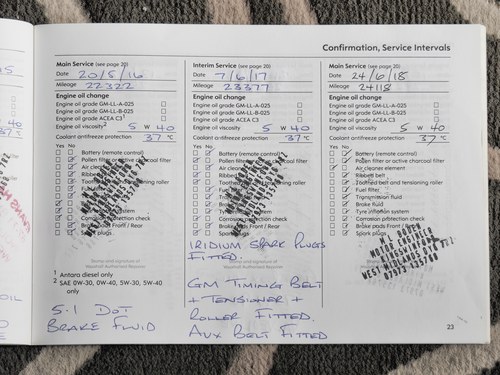 Confirmation, Service Intervals
Main Service (see page 20)
Date 20/5/16
Mileage 22322
Engine oil change
Engine oil grade GM-LL-A-025
Engine oil grade GM-LL-B-025
Engine oil grade ACEA C3¹
Engine oil viscosity² 5 W 40
Coolant antifreeze protection 37 °C
Yes No
Battery (remote control)
Pollen filter or active charcoal filter
Air
Ribbed
roller
Fuel
system
Corrosion protection check
Brake pads Front / Rear
plugs
Stamp and signature of
Vauxhall Authorised Repairer
1 Antara diesel only
2 SAE 0W-30, 0W-40, 5W-30, 5W-40
only
5.1 DOT
BRAKE FLUID
Interim Service (see page 20)
Date 7/6/17
Mileage 23377
Engine oil change
Engine oil grade GM-LL-A-025
Engine oil grade GM-LL-B-025
Engine oil grade ACEA C3
Engine oil viscosity 5 W 40
Coolant antifreeze protection 37 °C
Yes No
Battery (remote control)
Pollen filter or active charcoal filter
Air
Ribbed
roller
Fuel
system
check
Front / Rear
plugs
IRIDIUM SPARK PLUGS
FITTED.
Stamp and signature of
Vauxhall Authorised Repairer
GM TIMING BELT
+ TENSIONER +
ROLLER FITTED.
AUX BELT FITTED
Main Service (see page 20)
Date 24/6/18
Mileage 24118
Engine oil change
Engine oil grade GM-LL-A-025
Engine oil grade GM-LL-B-025
Engine oil grade ACEA C3
Engine oil viscosity 5 W 40
Coolant antifreeze protection 37 °C
Yes No
Battery (remote control)
Pollen filter or active charcoal filter
Air cleaner element
Ribbed belt
Toothed belt and tensioning roller
Fuel filter
Transmission fluid
Brake fluid
Tyre inflation system
Corrosion protection check
Brake pads Front / Rear
Spark plugs
MOTOR ENGINEER
WEST MIDLANDS
23